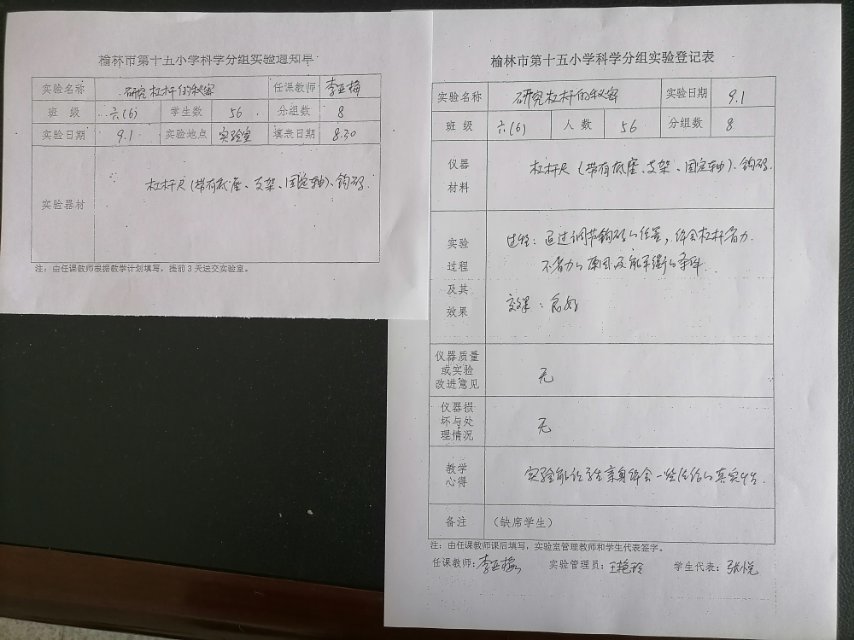 榆林市第十五小学科学分组实验通知单
实验名称 研究杠杆的秘密 任课教师 李亚梅
班 级 六(6) 学生数 56 分组数 8
实验日期 9.1 实验地点 实验室 填表日期 8.30
实验器材 杠杆尺(带有底座、支架、固定轴)、钩码.
注:由任课教师根据教学计划填写,提前3天送交实验室。
榆林市第十五小学科学分组实验登记表
实验名称 研究杠杆的秘密 实验日期 9.1
班 级 六(6) 人 数 56 分组数 8
仪器
材料
杠杆尺(带有底座、支架、固定轴)、钩码.
实验
过程
及其
效果
过程:通过调节钩码的位置,体会杠杆省力
不省力的原因及能平衡的条件
效果:良好
仪器质量
或实验
改进意见
无
仪器损
坏与处
理情况
无
教学
心得
实验能让学生亲身体会一些结论的真实性.
备注 (缺席学生)
注:由任课教师课后填写,实验室管理教师和学生代表签字。
任课教师:李亚梅 实验管理员:王艳玲 学生代表:张悦